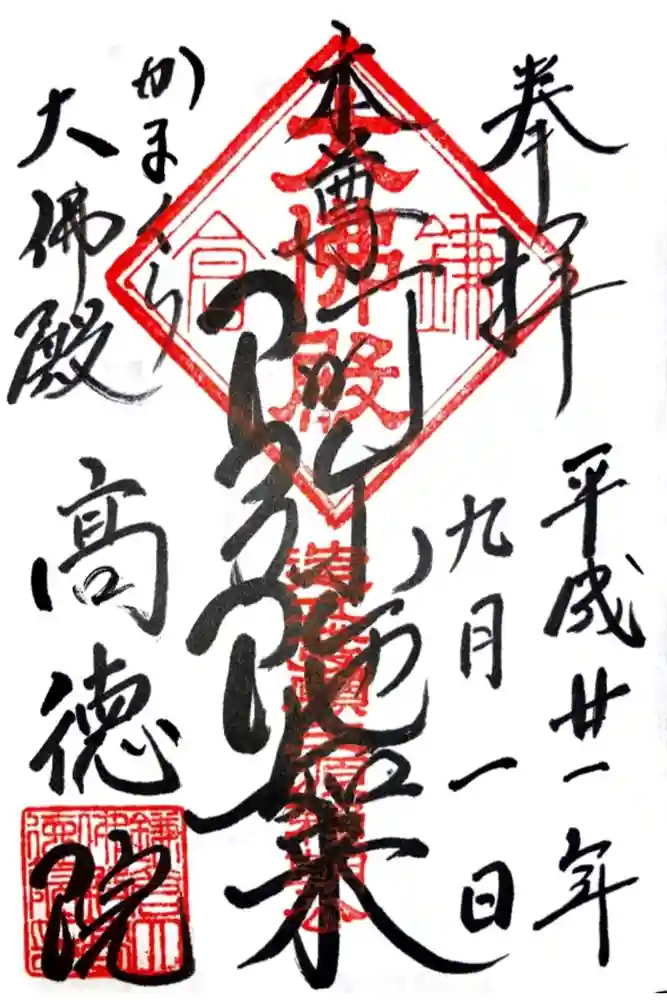 奉拝
平成廿一年
九月一日
本尊
阿弥陁如来
大佛殿
鎌倉
かまくら
大佛殿
高徳院